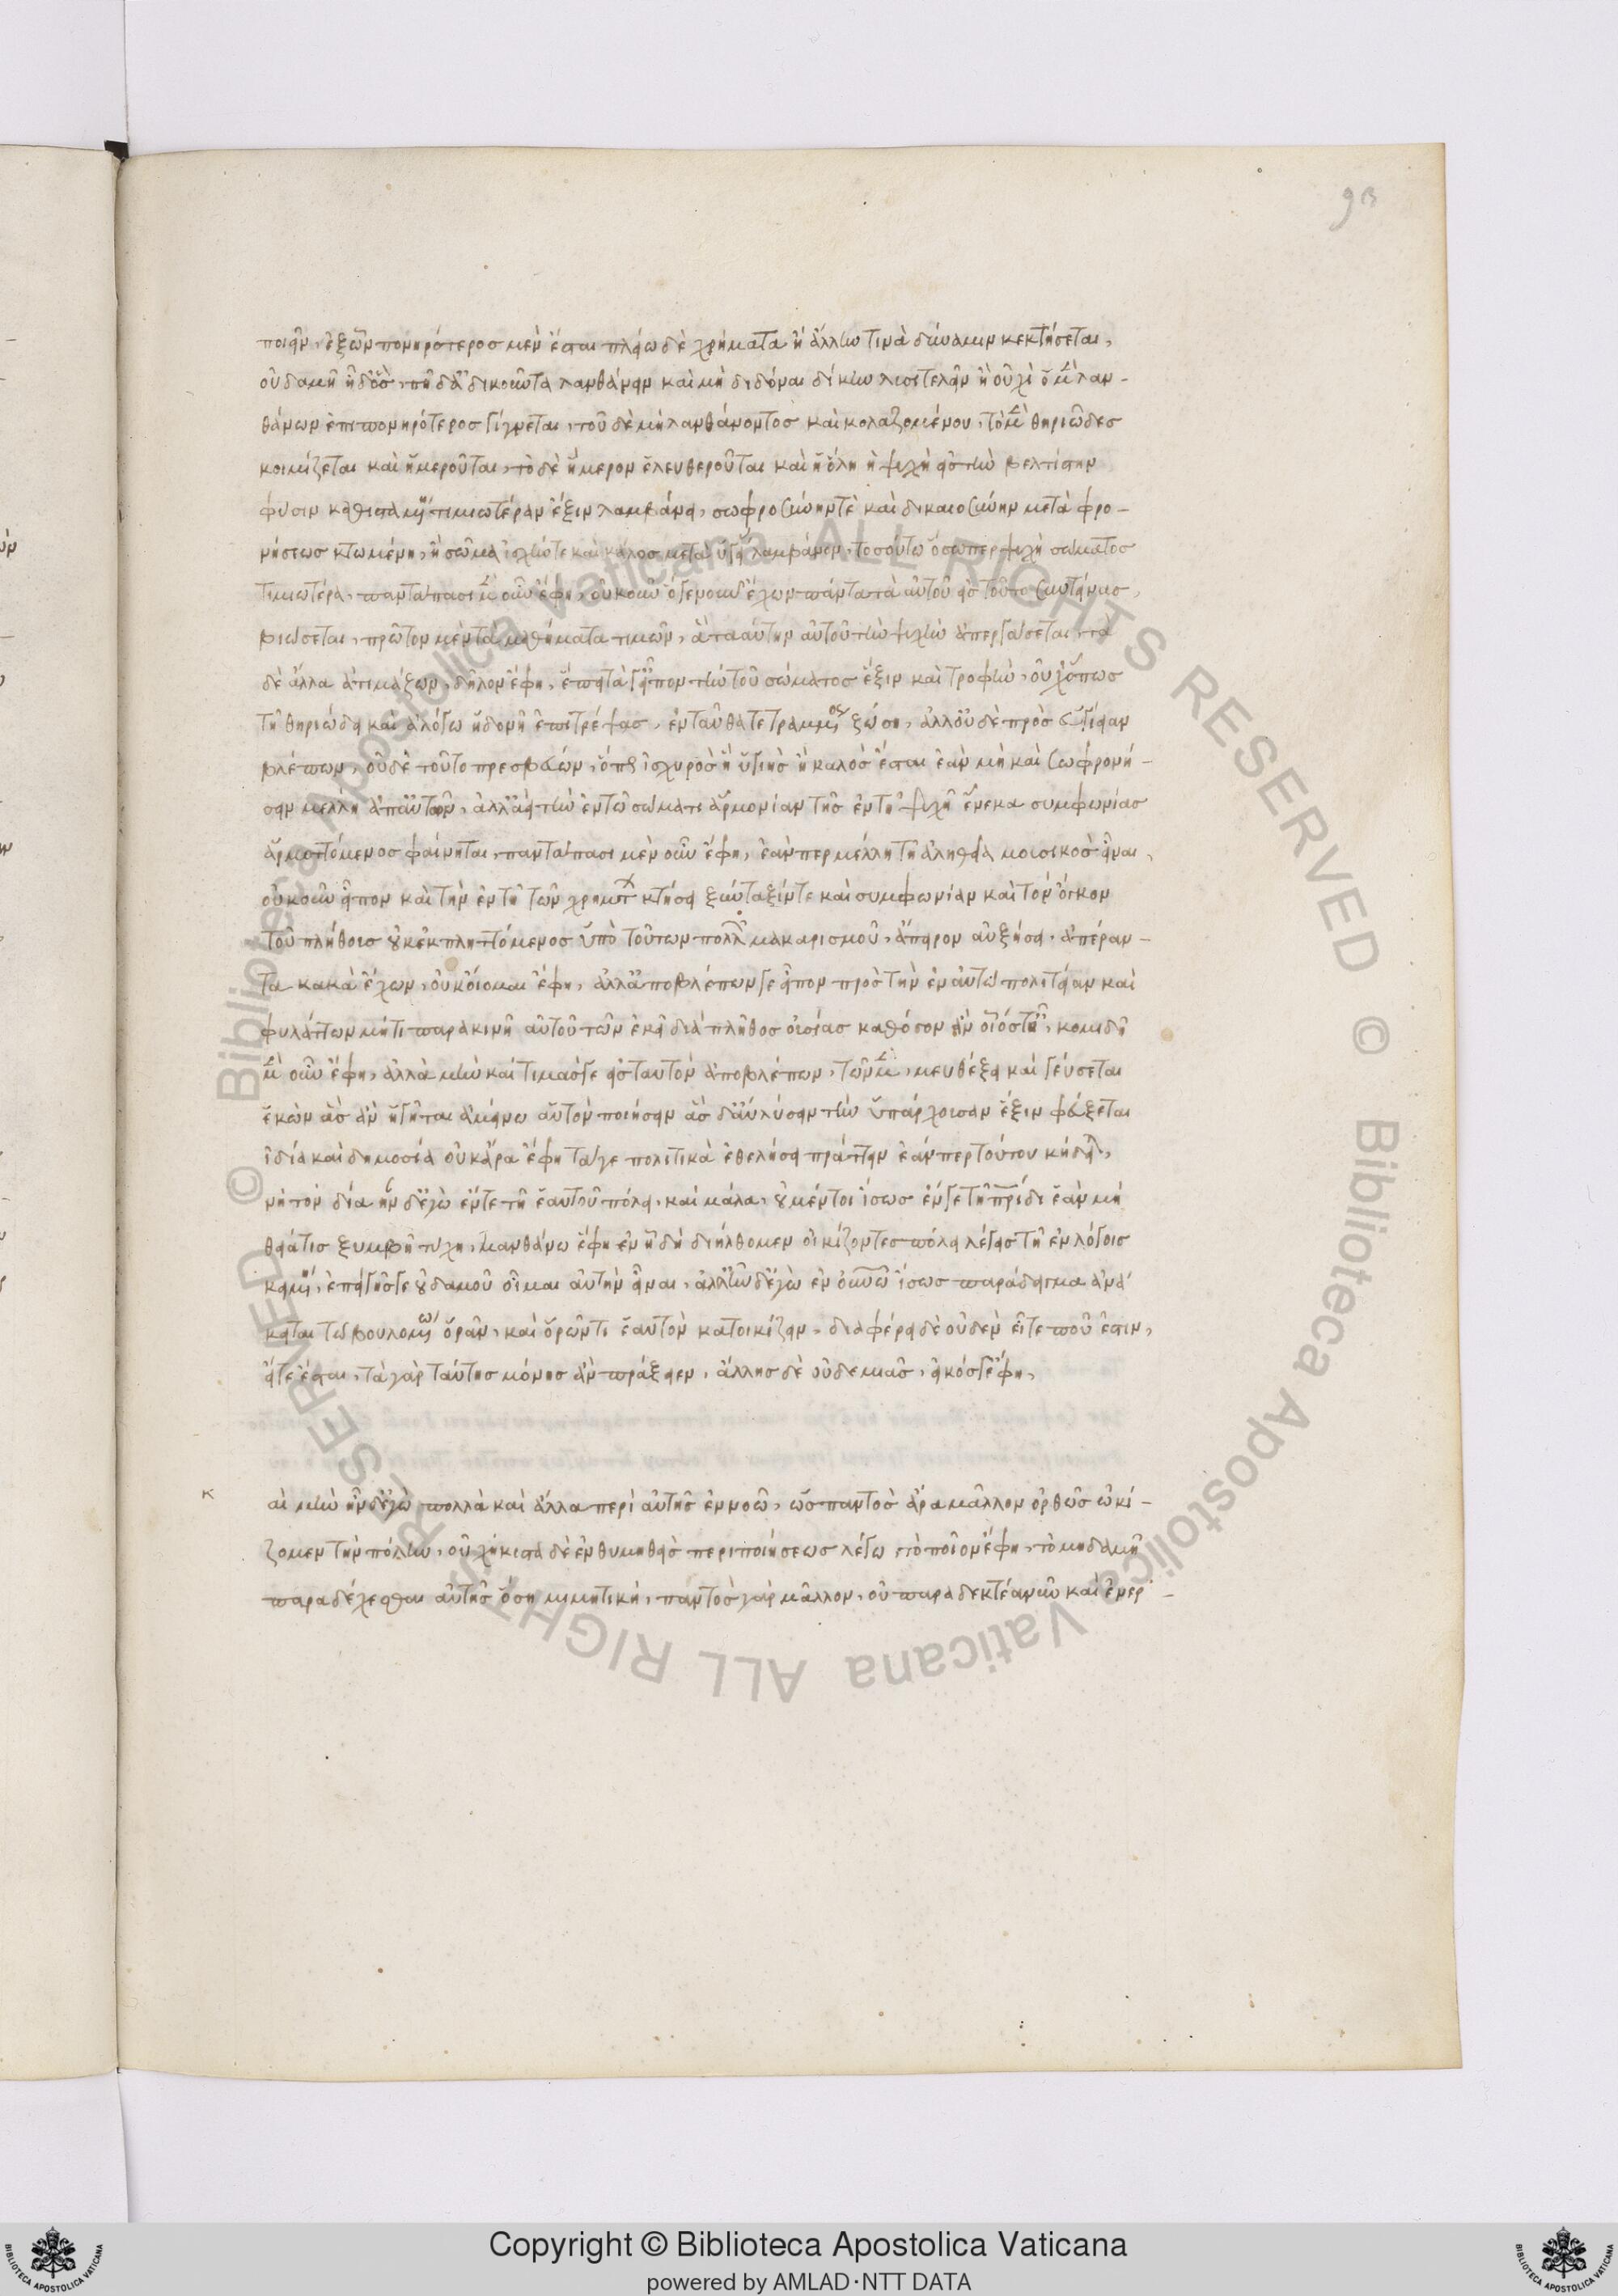 ϙβ
ποιεῖν, ἐξ ὧν πονηρότερος μὲν ἔσται πλείω δὲ χρήματα ἢ ἄλλην τινὰ δύναμιν κεκτήσεται,
οὐδαμῆ ἢ δ' ὃς, πῆ δ' ἀδικοῦντα λανθάνειν καὶ μὴ διδόναι δίκην λυσιτελεῖν ἢ οὐχὶ ὁ μὲν λαν-
θάνων ἔτι πονηρότερος γίγνεται, τοῦ δὲ μὴ λανθάνοντος καὶ κολαζομένου, τὸ μὲν θηριῶδες
κοιμίζεται καὶ ἡμεροῦται, τὸ δὲ ἥμερον ἐλευθεροῦται καὶ ἡ ὅλη ἡ ψυχὴ εἰς τὴν βελτίστην
φύσιν καθισταμένη τιμιωτέραν ἕξιν λαμβάνει, σωφροσύνην τὲ καὶ δικαιοσύνην μετὰ φρο-
νήσεως κτωμένη, ἢ σῶμα ἰσχύν τε καὶ κάλλος μετὰ ὑγιείας λαμβάνον, τοσούτω ὅσωπερ ψυχὴ σώματος
τιμιωτέρα, παντάπασι μὲν οὖν ἔφη, οὐκοῦν ὅ γε νοῦν ἔχων πάντα τὰ αὑτοῦ εἰς τοῦτο συντείνας
βιώσεται, πρῶτον μὲν τὰ μαθήματα τιμῶν, ἃ τοιαύτην αὐτοῦ τὴν ψυχὴν ἀπεργάσεται, τὰ
δὲ ἄλλα ἀτιμάζων, δῆλον ἔφη, ἔπειτά γ' εἶπον τὴν τοῦ σώματος ἕξιν καὶ τροφὴν, οὐχ ὅπως
τῆ θηριώδει καὶ ἀλόγω ἡδονῆ ἐπιτρέψας, ἐνταῦθα τετραμμένος ζώση, ἀλλ' οὐδὲ πρὸς ὑγίειαν
βλέπων, οὐδὲ τοῦτο πρεσβεύων, ὅπως ἰσχυρὸς ἢ ὑγιὴς ἢ καλὸς ἔσται ἐὰν μὴ καὶ σωφρονή-
σειν μέλλη ἀπ' αὐτῶν, ἀλλ' ἀεὶ τὴν ἐν τῶ σώματι ἁρμονίαν τῆς ἐν τῆ ψυχῆ ἕνεκα συμφωνίας
ἁρμοττόμενος φαίνηται, παντάπασι μὲν οὖν ἔφη, ἐάν περ μέλλη τῆ ἀληθεία μουσικὸς εἶναι,
οὐκοῦν εἶπον καὶ τὴν ἐν τῆ τῶν χρημάτων κτήσει ξύνταξίν τε καὶ συμφωνίαν καὶ τὸν ὄγκον
τοῦ πλήθους οὐκ ἐκπληττόμενος ὑπὸ τοῦ τῶν πολλῶν μακαρισμοῦ, ἄπειρον αὐξήσει, ἀπέραν-
τα κακὰ ἔχων, οὐκ οἴομαι ἔφη, ἀλλ' ἀποβλέπων γε εἶπον πρὸς τὴν ἐν αὑτῶ πολιτείαν καὶ
φυλάττων μή τι παρακινῆ αὑτοῦ τῶν ἐκεῖ διὰ πλῆθος οὐσίας καθόσον ἂν οἷός τ' ἦ, κομιδῆ
μὲν οὖν ἔφη, ἀλλὰ μὴν καὶ τιμάς γε εἰς ταυτὸν ἀποβλέπων, τῶν μὲν, μευθέξει καὶ γεύσεται
ἑκὼν ἃς ἂν ἡγῆται ἀμείνω αὐτὸν ποιήσειν ἃς δ' ἂν λύσειν τὴν ὑπάρχουσαν ἕξιν φεύξεται
ἰδία καὶ δημοσία οὐκ ἄρα ἔφη τά γε πολιτικὰ ἐθελήσει πράττειν ἐάνπερ τούτου κήδηται,
νὴ τὸν δία ἦν δ' ἐγὼ ἔν τε τῆ ἑαυτοῦ πόλει, καὶ μάλα, οὐ μέντοι ἴσως ἔν γε τῆ πατρίδι ἐὰν μὴ
θεία τις ξυμβῆ τύχη, μανθάνω ἔφη ἐν ἧ δὴ διήλθομεν οἰκίζοντες πόλει λέγεις τῆ ἐν λόγοις
κειμένη, ἐπεὶ γῆς γε οὐδαμοῦ οἶμαι αὐτὴν εἶναι, ἀλλ' ἦν δ' ἐγὼ ἐν οὐρανῶ ἴσως παράδειγμα ἀνά-
κειται τῶ βουλομένω ὁρᾶν, καὶ ὁρῶντι ἑαυτὸν κατοικίζειν, διαφέρει δὲ οὐδὲν εἴτε ποῦ ἐστιν,
εἴτε ἔσται, τὰ γὰρ ταύτης μόνης ἂν πράξειεν, ἄλλης δὲ οὐδεμιᾶς, εἰκός γ' ἔφη,
κ αὶ μὴν ἦν δ' ἐγὼ πολλὰ καὶ ἄλλα περὶ αὐτῆς ἐννοῶ, ὡς παντὸς ἄρα μᾶλλον ὀρθῶς ὠκί-
ζομεν τὴν πόλιν, οὐχ ἥκιστα δὲ ἐνθυμηθεὶς περὶ ποιήσεως λέγω, τὸ ποῖον ἔφη, τὸ μηδαμῆ
παραδέχεσθαι αὐτῆς ὅση μιμητική, παντὸς γὰρ μᾶλλον, οὐ παραδεκτέα νῦν καὶ ἐνερ-
Copyright © Biblioteca Apostolica Vaticana
powered by AMLAD·NTT DATA